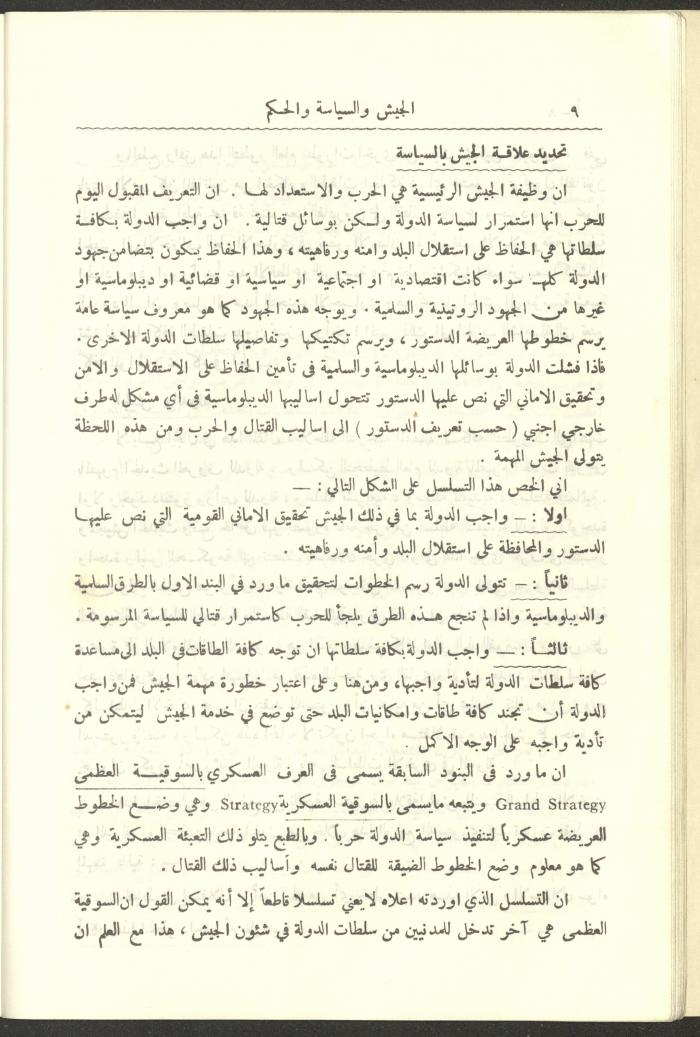 ٩ الجيش والسياسة والحكم
تحديد علاقة الجيش بالسياسة
ان وظيفة الجيش الرئيسية هي الحرب والاستعداد لها . ان التعريف المقبول اليوم
للحرب انها استمرار لسياسة الدولة ولكن بوسائل قتالية . ان واجب الدولة بكافة
سلطاتها هي الحفاظ على استقلال البلد وامنه ورفاهيته ، وهذا الحفاظ يكون بتضامن جهود
الدولة كلها سواء كانت اقتصادية او اجتماعية او سياسية او قضائية او ديبلوماسية او
غيرها من الجهود الروتينية والسلمية . ويوجه هذه الجهود كما هو معروف سياسة عامة
يرسم خطوطها العريضة الدستور ، ويرسم تكتيكها وتفاصيلها سلطات الدولة الاخرى .
فاذا فشلت الدولة بوسائلها الديبلوماسية والسلمية فى تأمين الحفاظ على الاستقلال والامن
وتحقيق الاماني التي نص عليها الدستور تتحول اساليبها الديبلوماسية فى أي مشكل له طرف
خارجي اجنبي ( حسب تعريف الدستور ) الى اساليب القتال والحرب ومن هذه اللحظة
يتولى الجيش المهمة .
اني الخص هذا التسلسل على الشكل التالي : —
اولا : — واجب الدولة بما في ذلك الجيش تحقيق الاماني القومية التي نص عليها
الدستور والمحافظة على استقلال البلد وأمنه ورفاهيته .
ثانياً : — تتولى الدولة رسم الخطوات لتحقيق ما ورد في البند الاول بالطرق السلمية
والديبلوماسية واذا لم تنجع هذه الطرق يلجأ للحرب كاستمرار قتالي للسياسة المرسومة .
ثالثاً : — واجب الدولة بكافة سلطاتها ان توجه كافة الطاقات فى البلد الى مساعدة
كافة سلطات الدولة لتأدية واجبها، ومن هنا وعلى اعتبار خطورة مهمة الجيش فمن واجب
الدولة أن تجند كافة طاقات وامكانيات البلد حتى توضع في خدمة الجيش ليتمكن من
تأدية واجبه على الوجه الاكمل .
ان ما ورد فى البنود السابقة يسمى فى العرف العسكري بالسوقية العظمى
Grand Strategy ويتبعه مايسمى بالسوقية العسكرية Strategy وهي وضع الخطوط
العريضة عسكرياً لتنفيذ سياسة الدولة حرباً . وبالطبع يتلو ذلك التعبئة العسكرية وهي
كما هو معلوم وضع الخطوط الضيقة للقتال نفسه وأساليب ذلك القتال .
ان التسلسل الذي اوردته اعلاه لايعني تسلسلا قاطعاً إلا أنه يمكن القول ان السوقية
العظمى هي آخر تدخل للمدنيين من سلطات الدولة في شئون الجيش ، هذا مع العلم ان